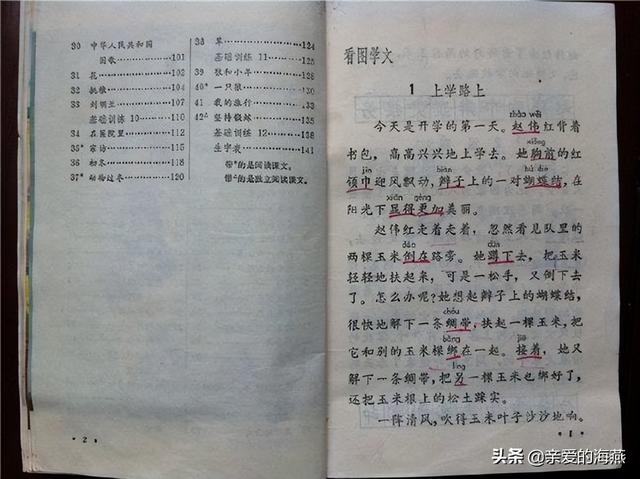 30 中华人民共和国
国歌 101
31 花 103
32 106
33 107
基础训练 10 110
34 在医院里 112
35* 家访 115
36 初冬 118
37* 动物过冬 120
38 草 124
基础训练 11 125
39 狼和小羊 128
40* 130
41 我的旅行 133
42△ 坚持锻炼 135
基础训练 12 138
生字表 141
带*的是阅读课文。
带△的是独立阅读课文。
· 2 ·
看图学文
1 上学路上
zhào wěi
今天是开学的第一天。赵伟红背着
xiōng
书包，高高兴兴地上学去。她胸前的红
jīn biàn hú dié
领巾迎风飘动，辫子上的一对蝴蝶结，在
xiǎn gèng
阳光下显得更加美丽。
赵伟红走着走着，忽然看见队里的
dǎo dūn
两棵玉米倒在路旁。她蹲下去，把玉米
轻轻地扶起来，可是一松手，又倒下去
了。怎么办呢？她想起辫子上的蝴蝶结，
chóu
很快地解下一条绸带，扶起一棵玉米，把
bǎng jiē
它和别的玉米棵绑在一起。接着，她又
lìng
解下一条绸带，把另一棵玉米也绑好了，
还把玉米根上的松土踩实。
一阵清风，吹得玉米叶子沙沙地响。
· 1 ·
头条 @亲爱的海燕